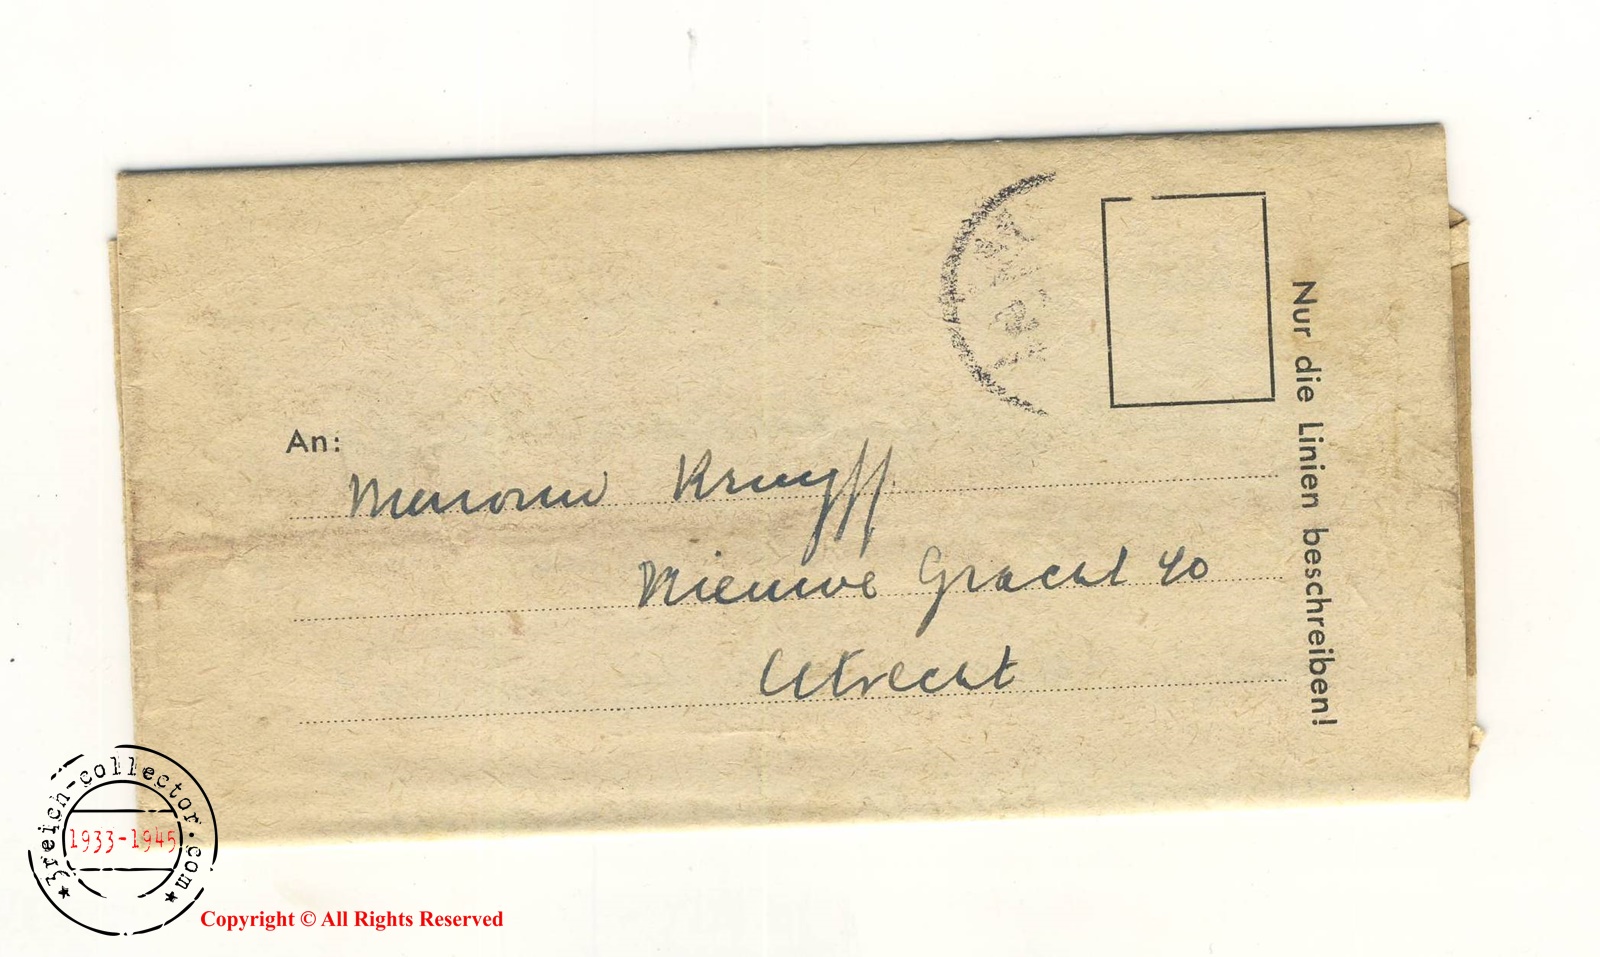 An:
Mevrouw Kruyff
Nieuwe Gracht 40
Utrecht
Nur die Linien beschreiben!
3reich-collector.com
1933-1945
Copyright © All Rights Reserved